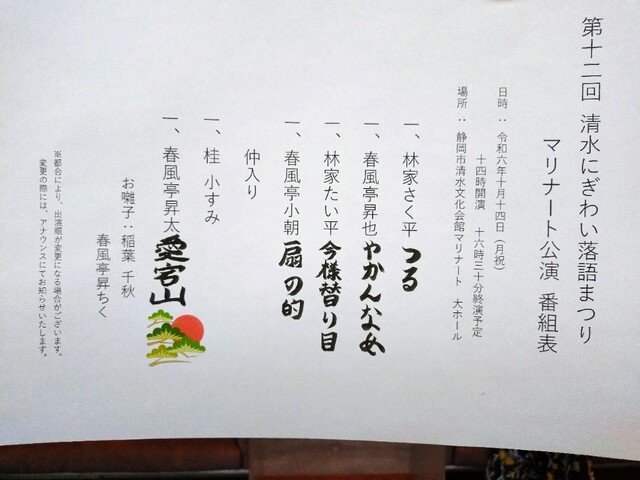 第十二回 清水にぎわい落語まつり
マリナート公演 番組表
日時：令和六年十月十四日（月祝）
十四時開演 十六時三十分終演予定
場所：静岡市清水文化会館マリナート 大ホール
一、林家さく平 つる
一、春風亭昇也 やかんなめ
一、林家たい平 今様替り目
一、春風亭小朝 扇の的
仲入り
一、桂 小すみ
一、春風亭昇太 愛宕山
お囃子：稲葉 千秋
春風亭昇ちく
※都合により、出演順が変更になる場合がございます。
変更の際には、アナウンスにてお知らせいたします。